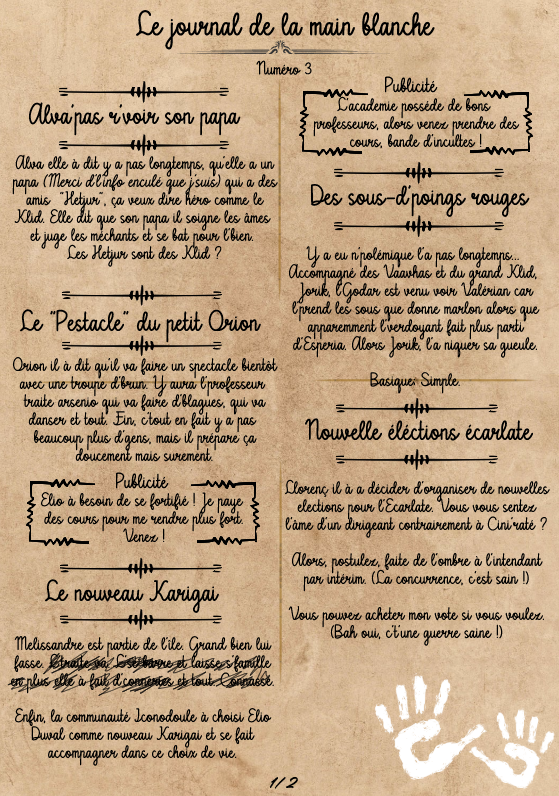 Le journal de la main blanche
Numéro 3
Alva'pas r'voir son papa
Alva elle à dit y a pas longtemps, qu'elle a un
papa (Merci d'l'info enculé que j'suis) qui a des
amis "Hetjur", ça veux dire héro comme le
Klid. Elle dit que son papa il soigne les âmes
et juge les méchants et se bat pour l'bien.
Les Hetjur sont des Klid ?
Le "Pestacle" du petit Orion
Orion il à dit qu'il va faire un spectacle bientôt
avec une troupe d'brun. Y aura l'professeur
traite arsenio qui va faire d'blagues, qui va
danser et tout. Ein, c'tout en fait y a pas
beaucoup plus d'gens, mais il prépare ça
doucement mais surement.
Publicité
Elio à besoin de se fortifié ! Je paye
des cours pour me rendre plus fort.
Venez !
Le nouveau Karigai
Melissandre est partie de l'île. Grand bien lui
fasse. et laisse s'famille
en plus elle à fait d'conneries et tout. Connasse.
Enfin, la communauté Iconodoule à choisi Elio
Duval comme nouveau Karigai et se fait
accompagner dans ce choix de vie.
Publicité
L'academie possède de bons
professeurs, alors venez prendre des
cours, bande d'incultes !
Des sous-d'poings rouges
Y a eu n'polémique l'a pas longtemps...
Accompagné des Vaavhas et du grand Klid,
Jorik, l'Godar est venu voir Valérian car
l'prend les sous que donne marlon alors que
apparemment l'verdoyant fait plus parti
d'Esperia. Alors Jorik, l'a niquer sa gueule.
Basique. Simple.
Nouvelle éléctions écarlate
Llorenç il à a décider d'organiser de nouvelles
elections pour l'Ecarlate. Vous vous sentez
l'âme d'un dirigeant contrairement à Cini'raté ?
Alors, postulez, faite de l'ombre à l'intendant
par intérim. (La concurrence, c'est sain !)
Vous pouvez acheter mon vote si vous voulez.
(Bah oui, c't'une guerre saine !)
1/2